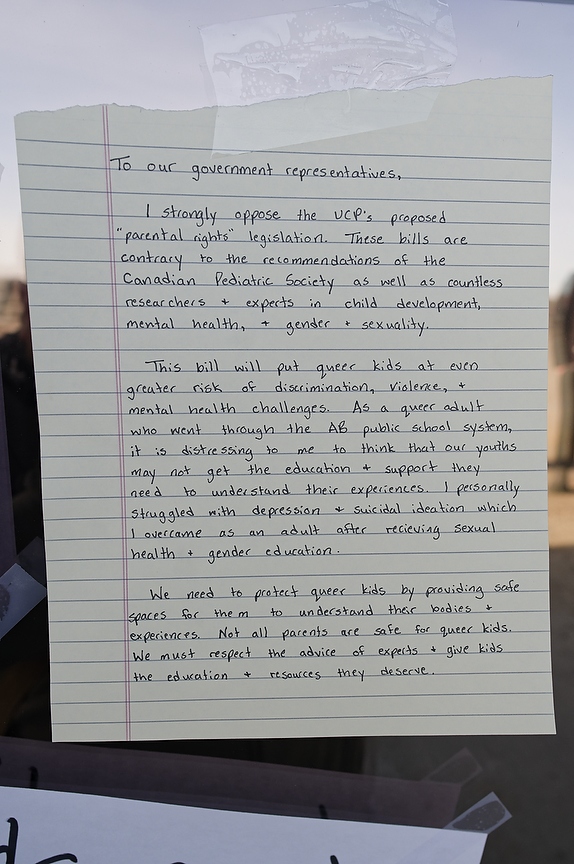 To our government representatives,
I strongly oppose the UCP's proposed
"parental rights" legislation. These bills are
contrary to the recommendations of the
Canadian Pediatric Society as well as countless
researchers + experts in child development,
mental health, + gender + sexuality.
This bill will put queer kids at even
greater risk of discrimination, violence, +
mental health challenges. As a queer adult
who went through the AB public school system,
it is distressing to me to think that our youths
may not get the education + support they
need to understand their experiences. I personally
struggled with depression + suicidal ideation which
I overcame as an adult after recieving sexual
health + gender education.
We need to protect queer kids by providing safe
spaces for them to understand their bodies +
experiences. Not all parents are safe for queer kids.
We must respect the advice of experts + give kids
the education + resources they deserve.